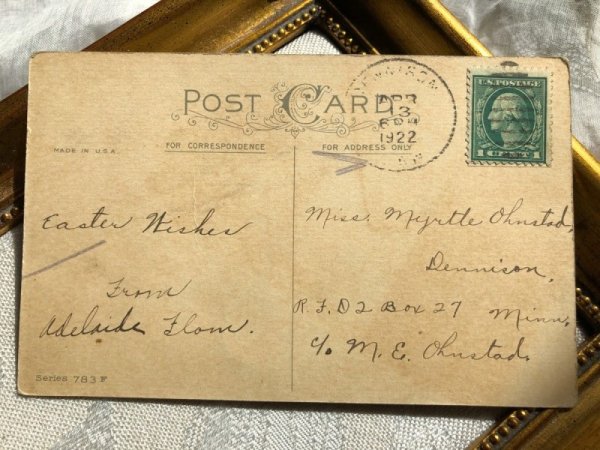 POST CARD
MADE IN U.S.A.
FOR CORRESPONDENCE
FOR ADDRESS ONLY
APR
13
1922
U.S. POSTAGE
1 CENT 1
Easter Wishes
From
Adelaide Flom.
Miss. Myrtle Ohnstad,
Dennison,
R.F.D 2 Box 27 Minn.
c/o M. E. Ohnstad.
Series 783 F